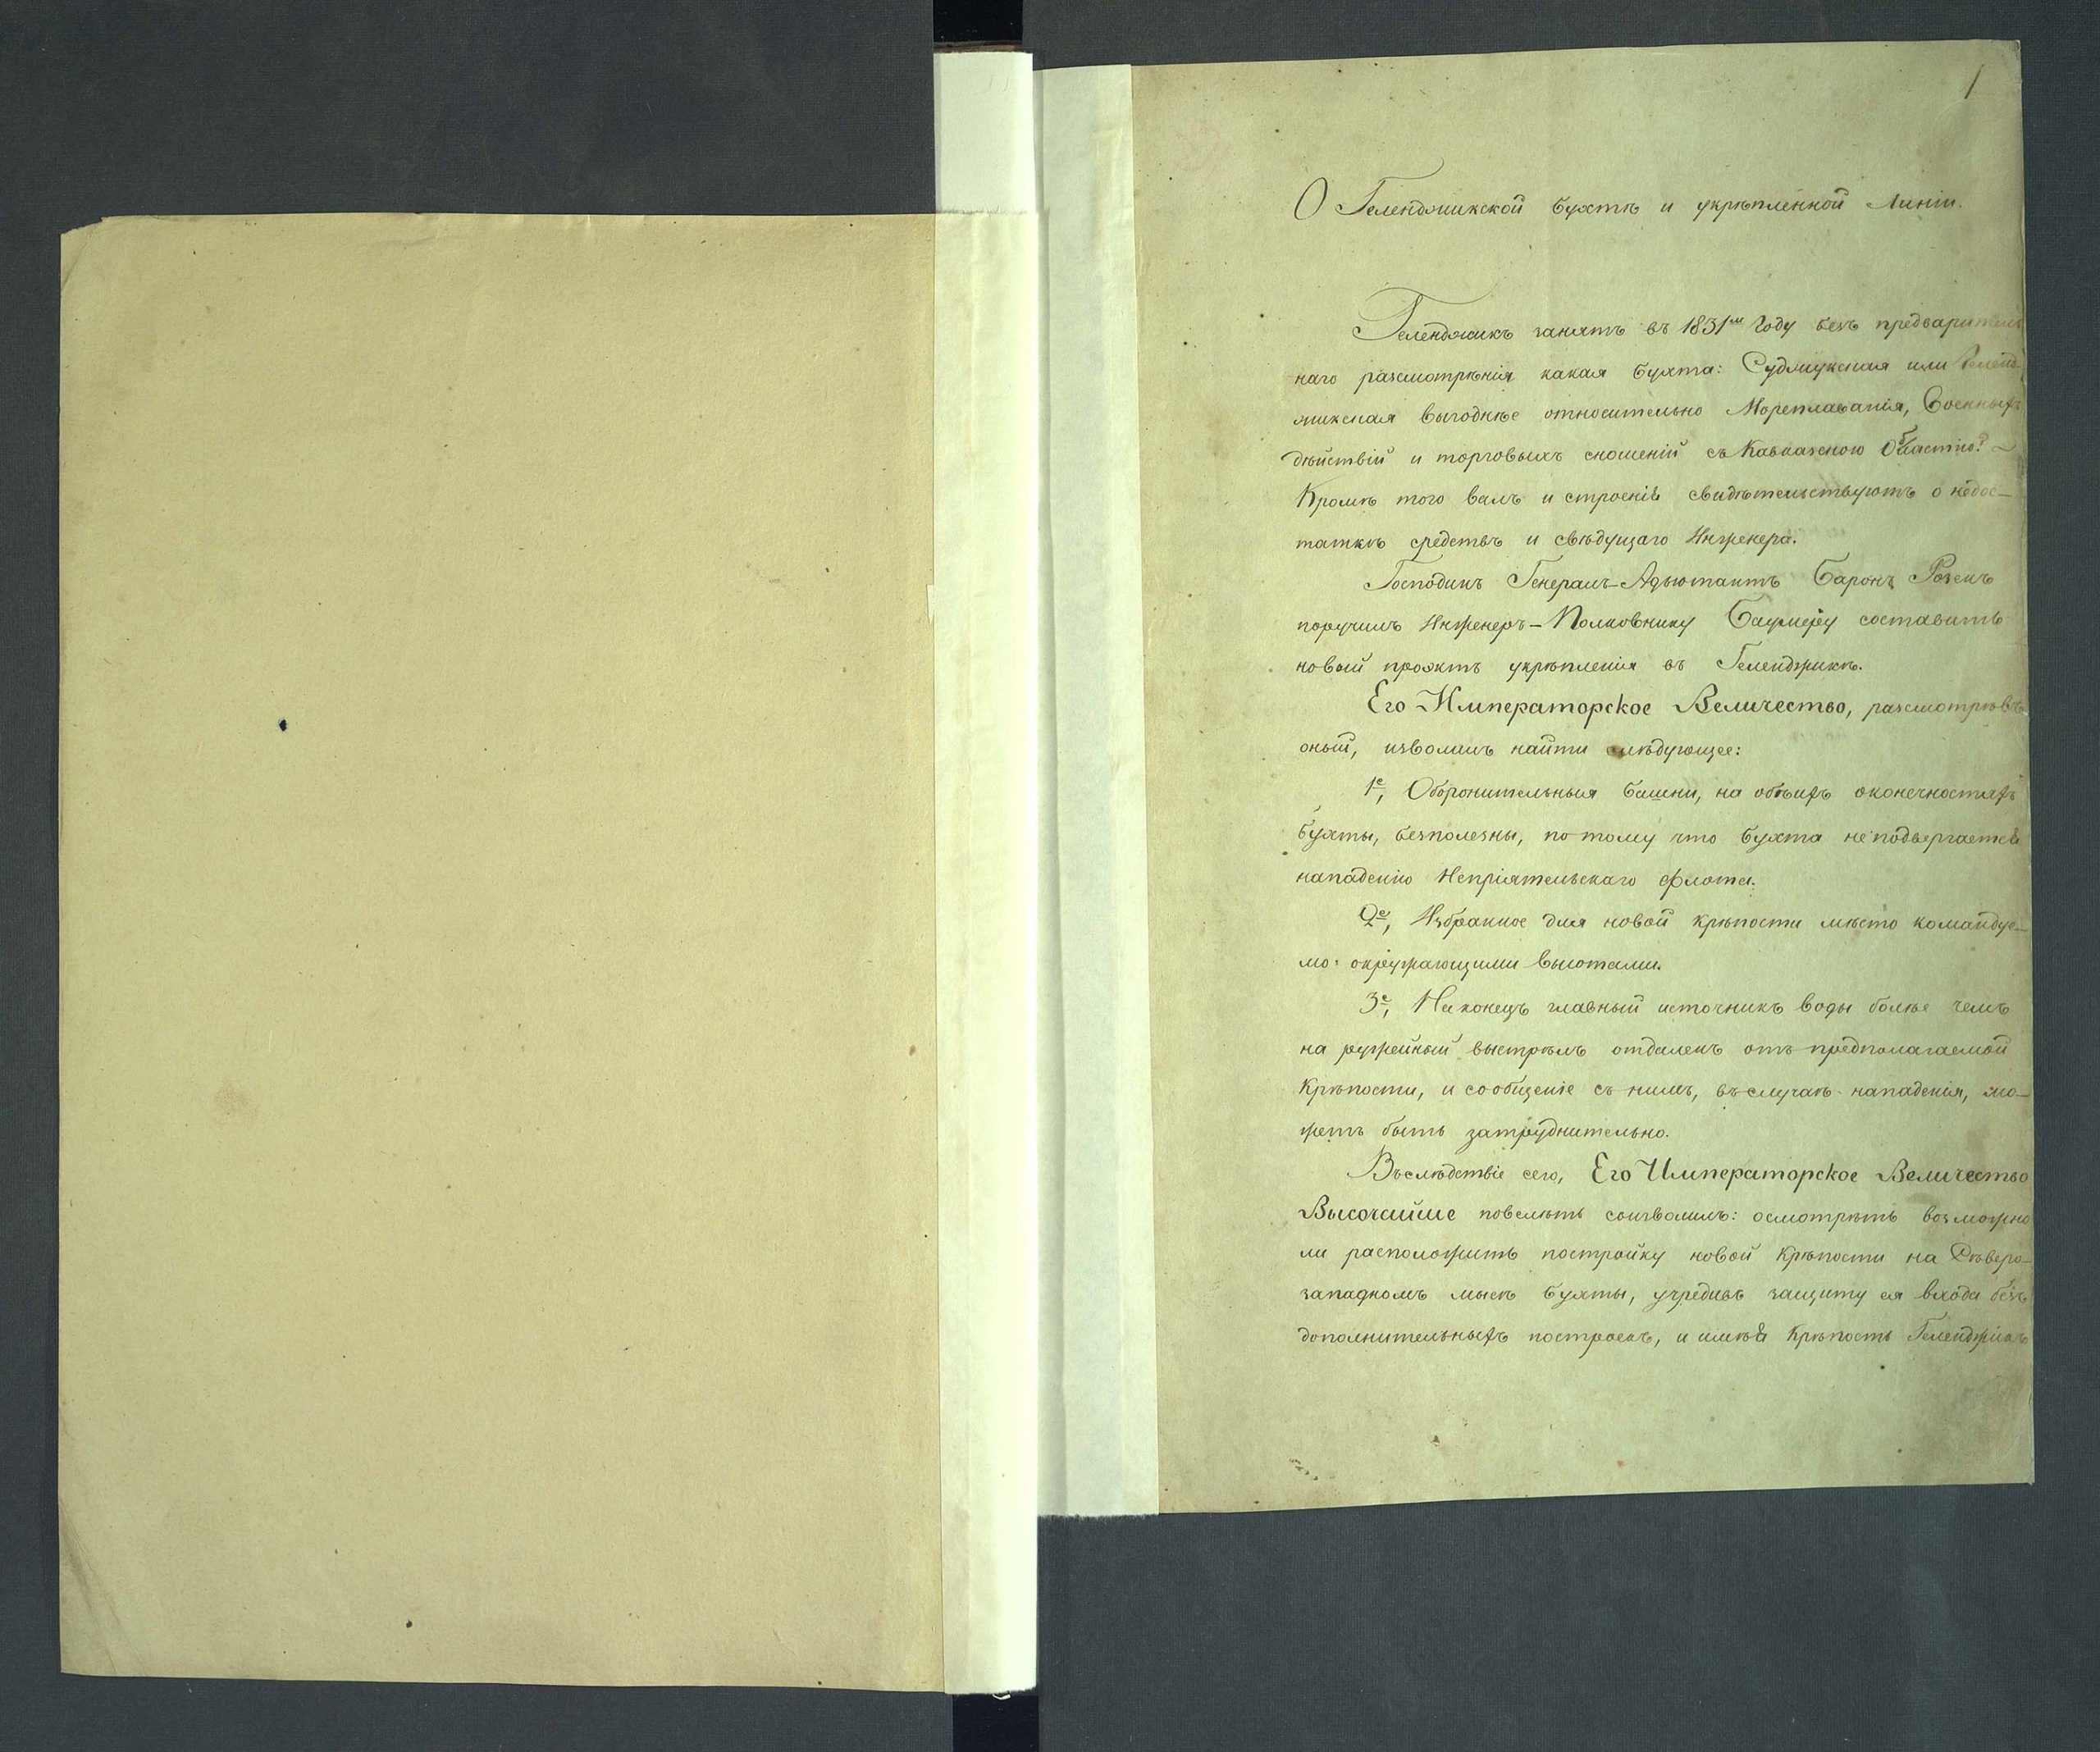 1
О Геленджикской бухтѣ и укрѣпленной Линіи.
Геленджикъ занятъ въ 1831мъ Году безъ предваритель
наго разсмотрѣнія какая бухта: Суджукская или Гелен-
жикская выгоднѣе относительно Мореплаванія, Военныхъ
дѣйствій и торговыхъ сношеній съ Кавказскою Областію? ~
Кромѣ того валъ и строенія свидѣтельствуютъ о недос-
таткѣ средствъ и свѣдущаго Инженера.
Господинъ Генералъ-Адъютантъ Баронъ Розенъ
поручилъ Инженеръ-Полковнику Баумеру составить
новый проэктъ укрѣпленія въ Геленджикѣ.
Его Императорское Величество, разсмотрѣвъ
оный, изволилъ найти слѣдующее:
1е, Оборонительныя башни, на обѣихъ оконечностяхъ
бухты, безполезны, по тому что бухта не подвергается
нападенію Непріятельскаго флота.
2е, Избранное для новой крѣпости мѣсто командуе-
мо окружающими высотами.
3е, Наконецъ главный источникъ воды болѣе чемъ
на ружейный выстрѣлъ отдаленъ отъ предполагаемой
Крѣпости, и сообщеніе съ нимъ, въ случаѣ нападенія, мо-
жетъ быть затруднительно.
Въслѣдствіе сего, Его Императорское Величество
Высочайше повелѣть соизволилъ: осмотрѣть возможно
ли расположить постройку новой Крѣпости на Сѣверо-
западномъ мысѣ бухты, учредивъ защиту ея входа безъ
дополнительныхъ построекъ, и имѣя Крѣпость Геленджикъ